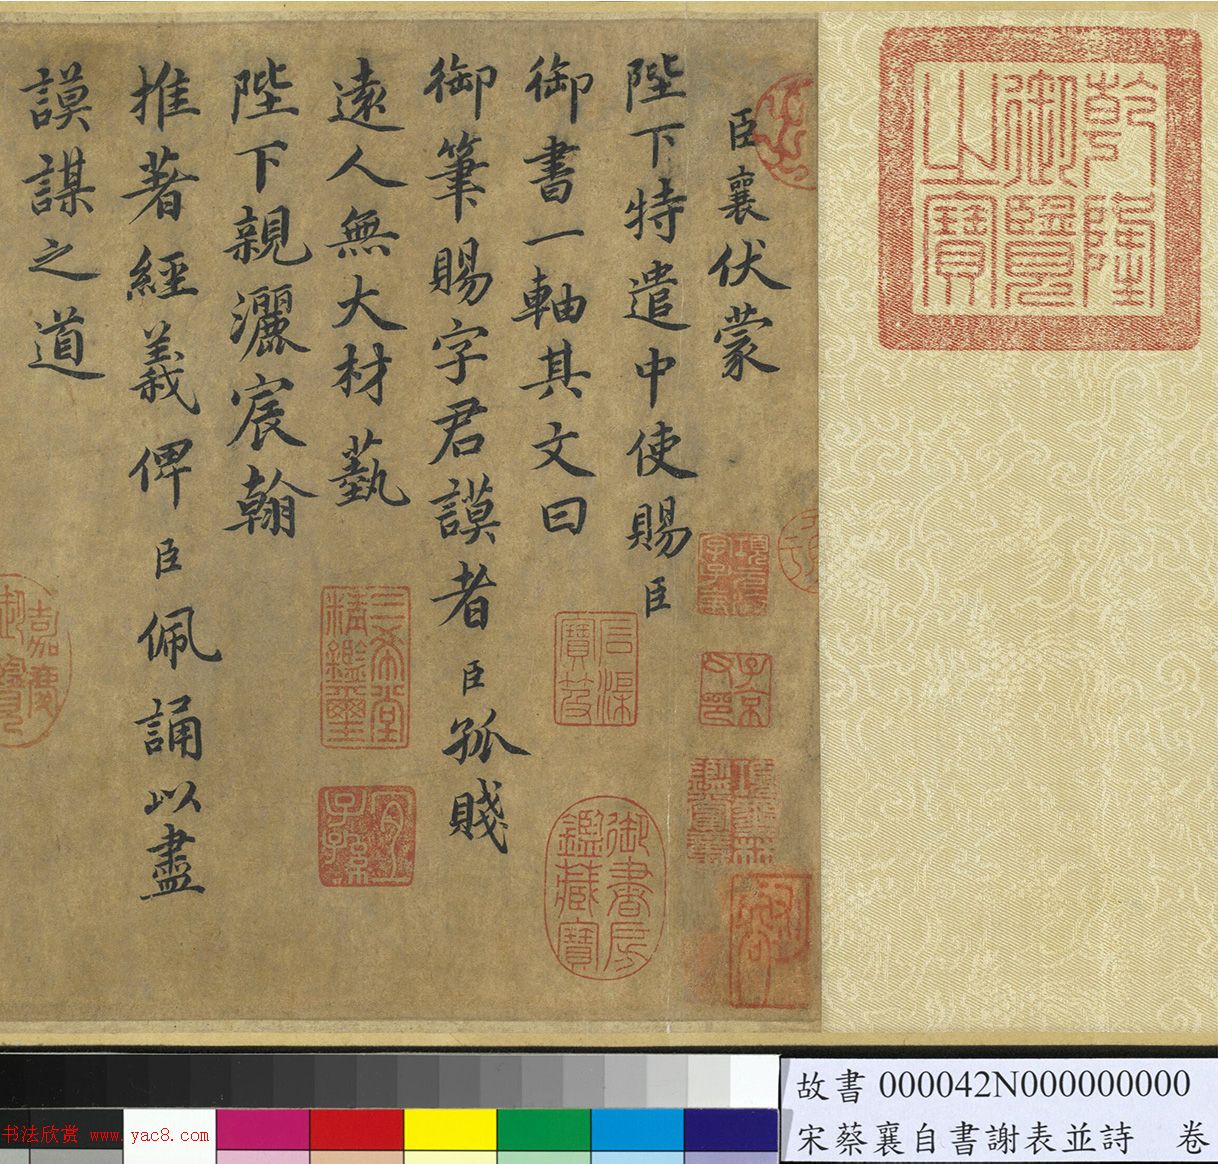 乾隆
御覽
之寶
臣襄伏蒙
陛下特遣中使賜臣
御書一軸其文曰
御筆賜字君謨者臣孤賤
遠人無大材藝
陛下親灑宸翰
推著經義俾臣佩誦以盡
謨謀之道
子京
父印
石渠
寶笈
御書房
鑑藏寶
三希堂
精鑑璽
宜
子孫
嘉慶
御覽
故書 000042N000000000
宋蔡襄自書謝表並詩 卷
书法欣赏 www.yac8.com